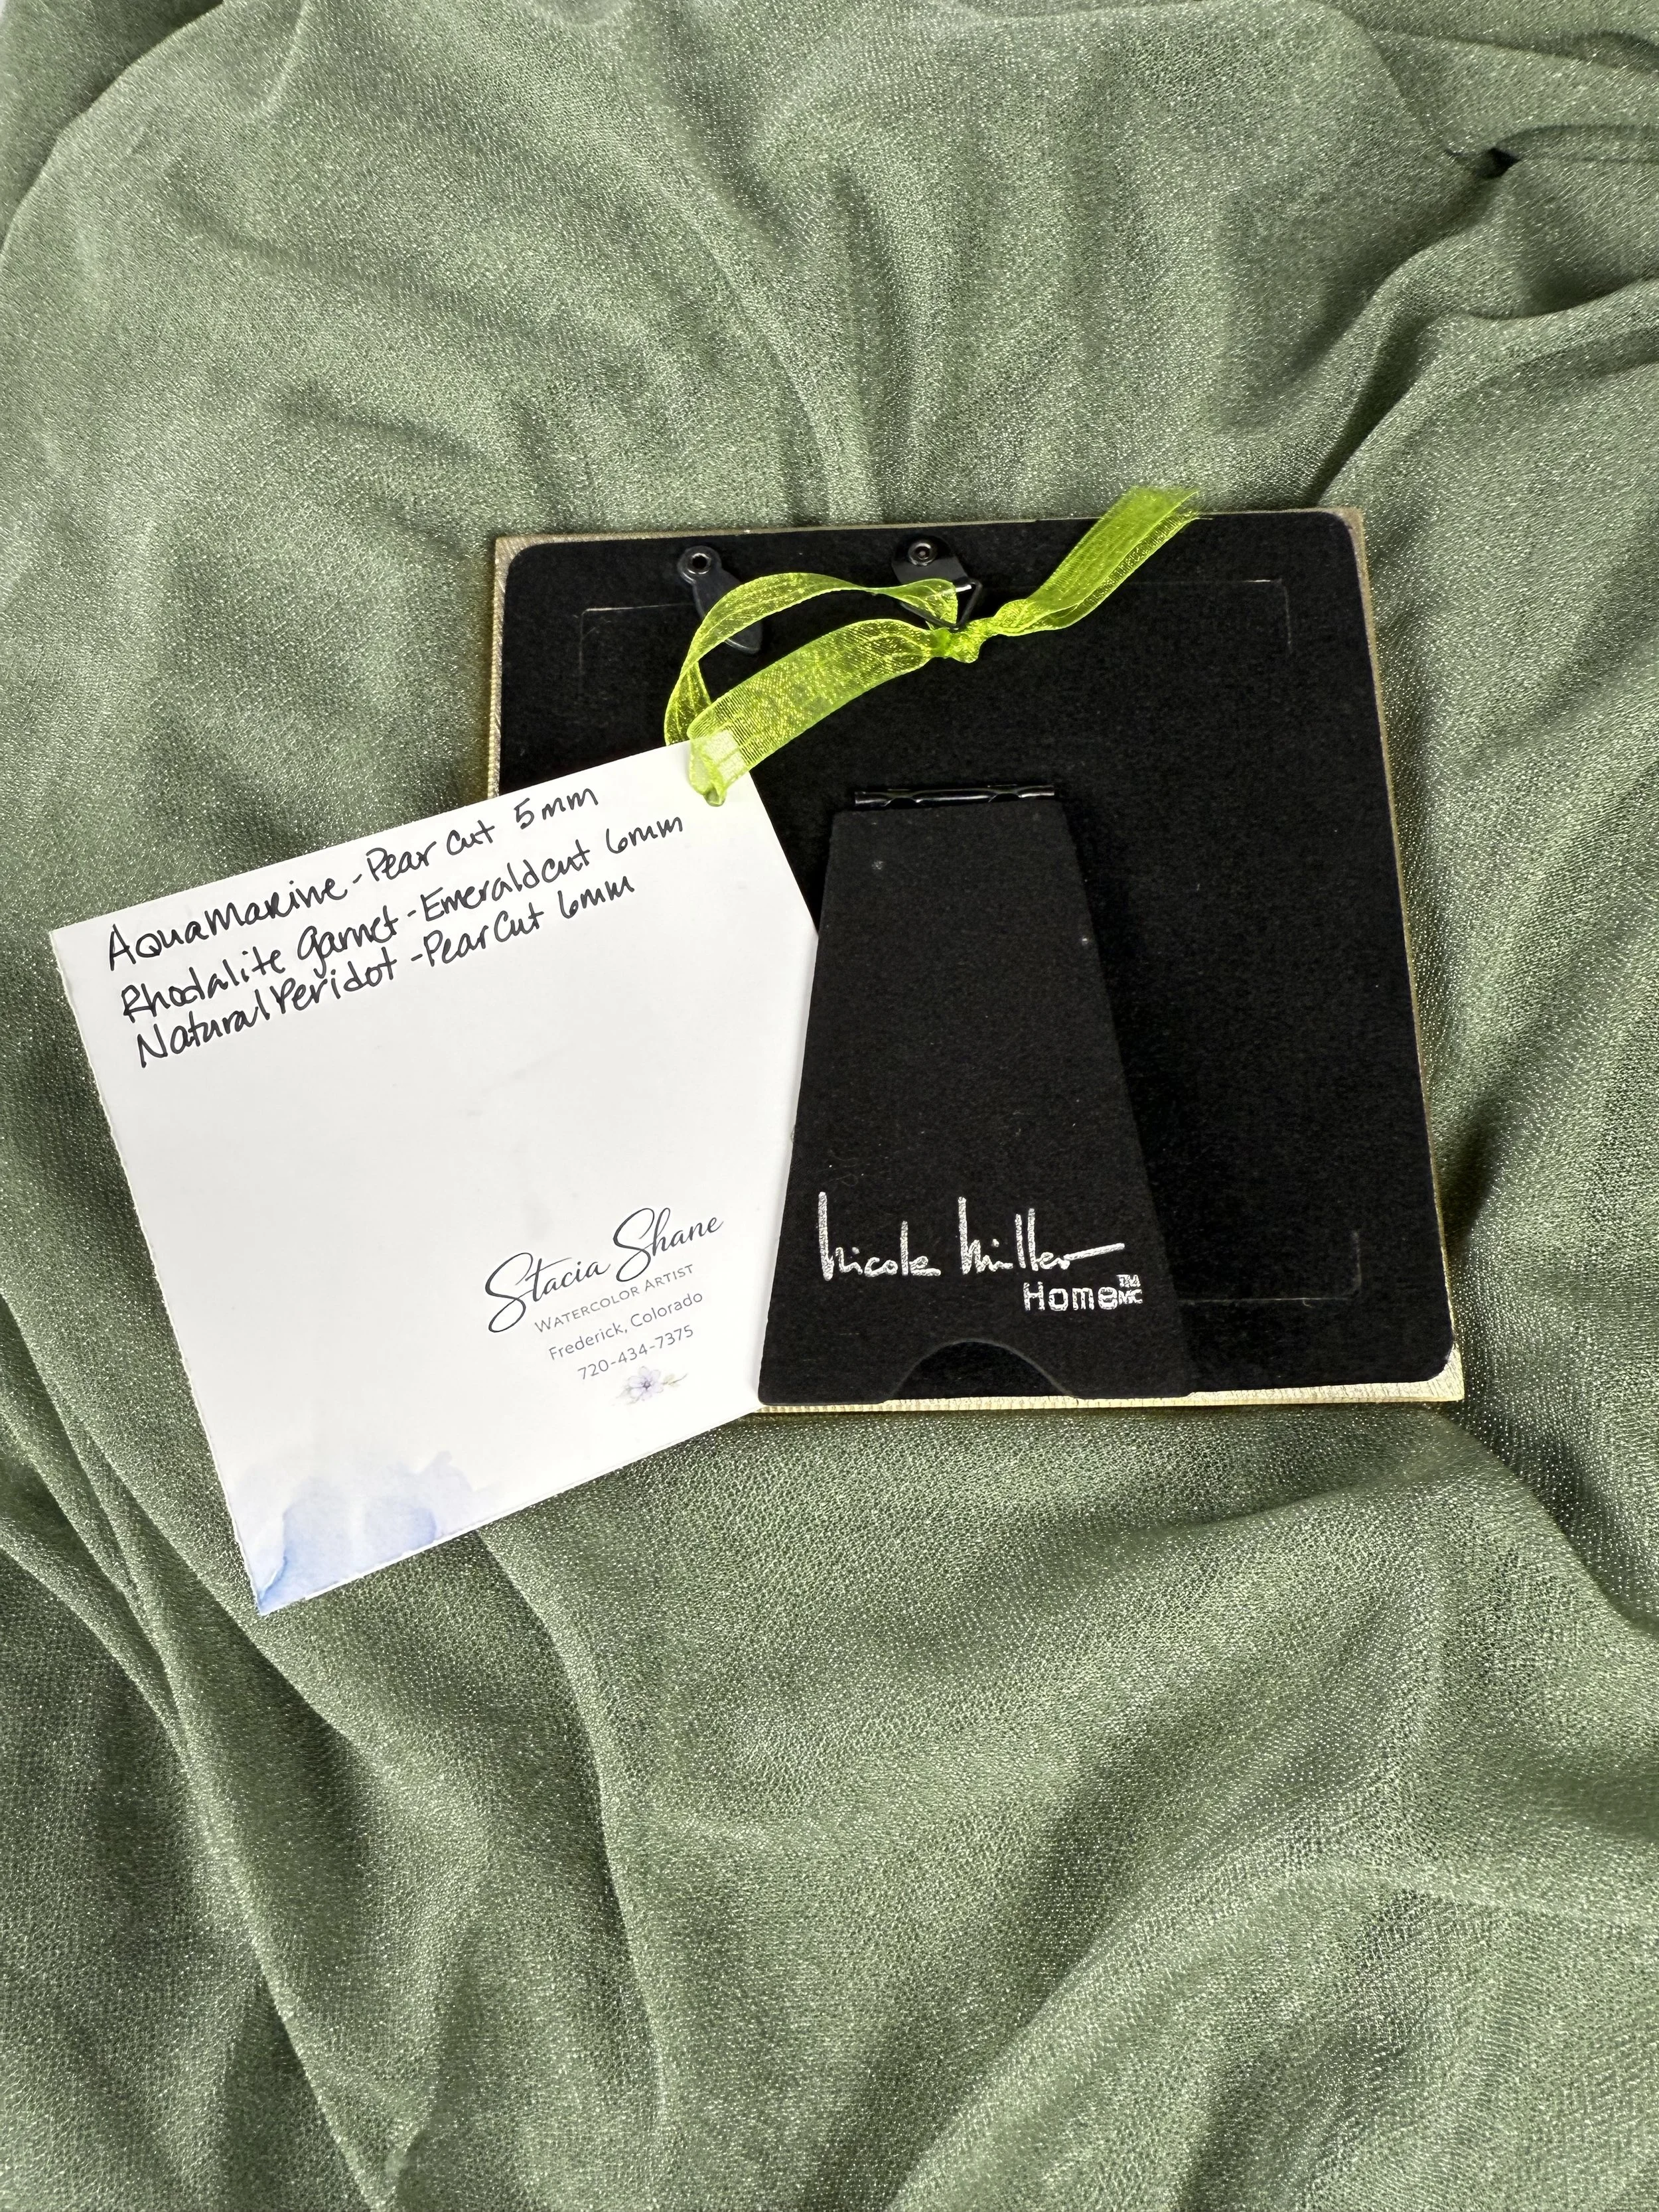 AquaMarine - Pear Cut 5mm
Rhodalite Garnet - Emerald cut 6mm
Natural Peridot - Pear Cut 6mm
Stacia Shane
WATERCOLOR ARTIST
Frederick, Colorado
720-434-7375
Nicole Miller
Home TM
MC